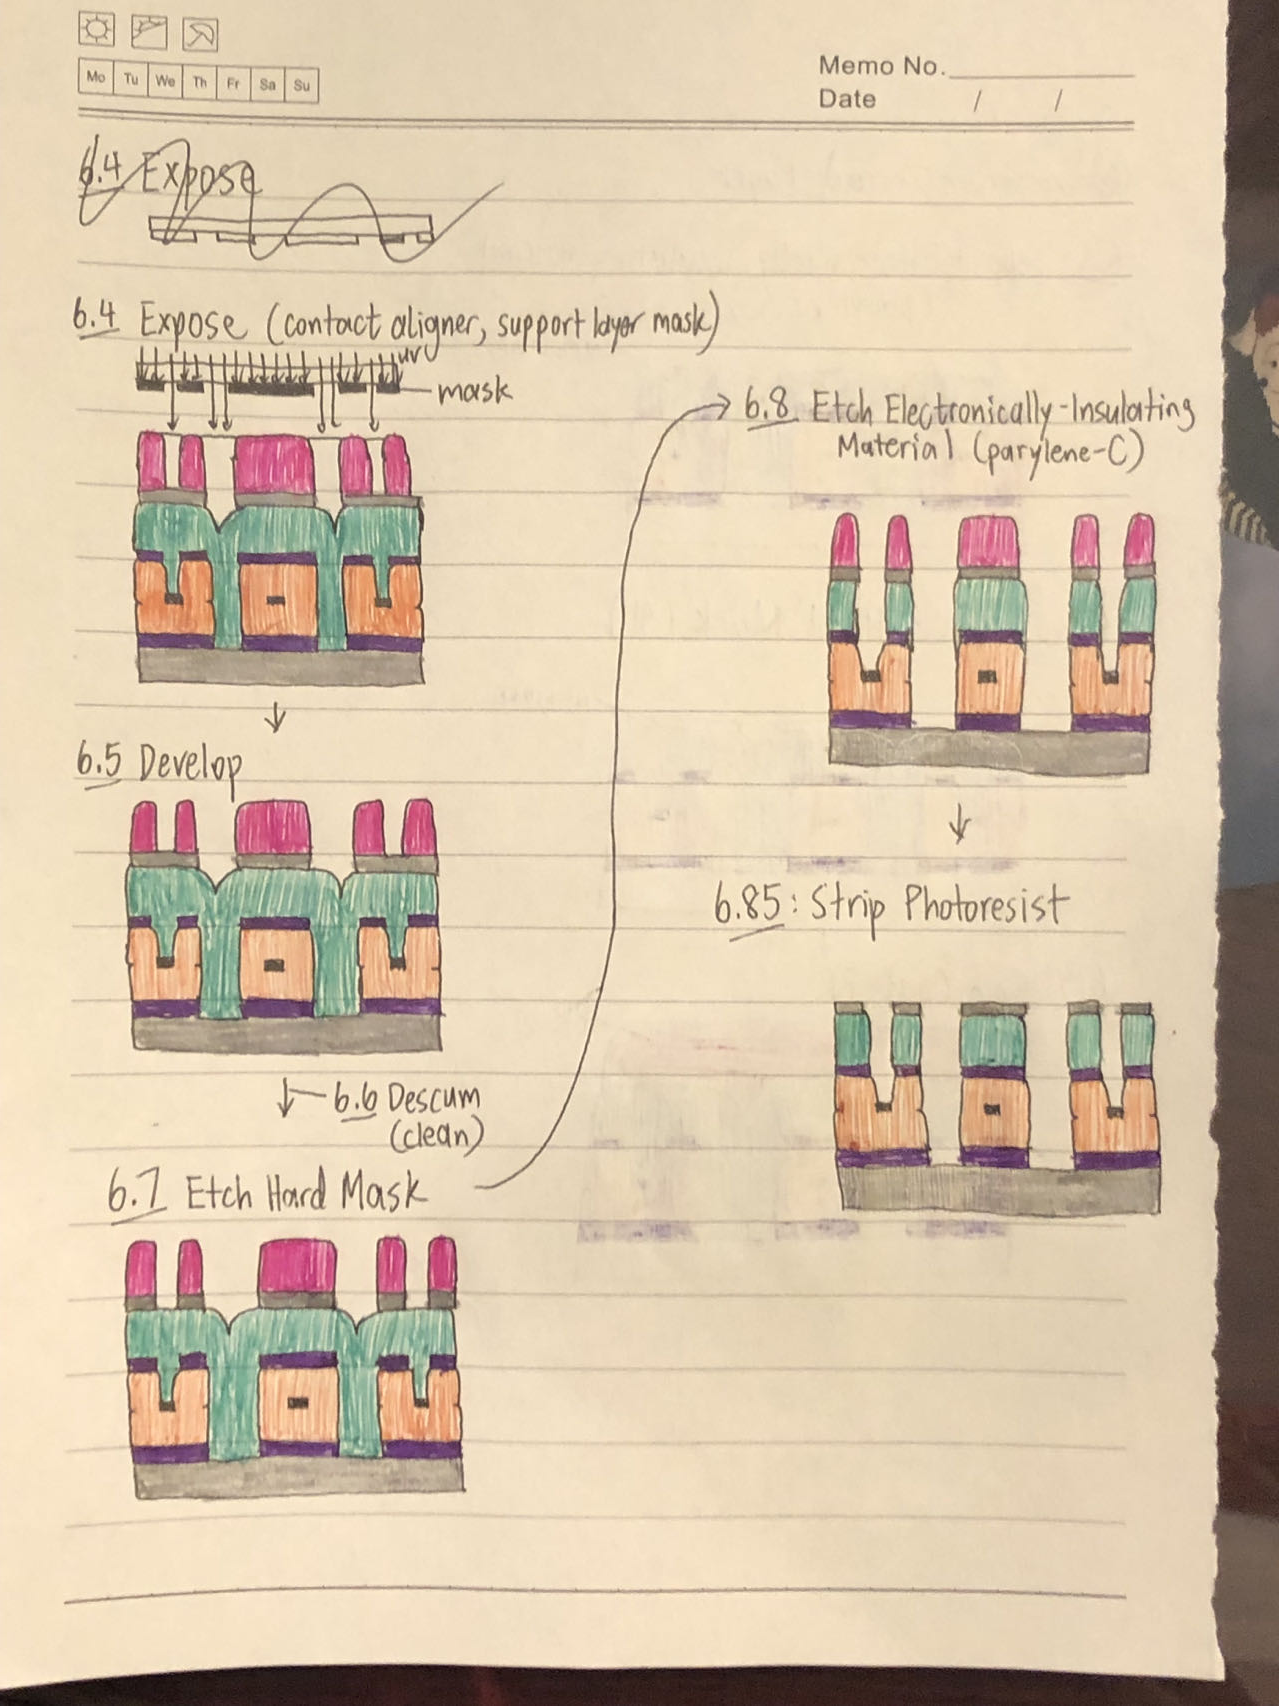 Mo Tu We Th Fr Sa Su
Memo No.
Date / /
6.4 Expose
6.4 Expose (contact aligner, support layer mask)
UV
mask
6.5 Develop
6.6 Descum
(clean)
6.7 Etch Hard Mask
6.8 Etch Electronically-Insulating
Material (parylene-C)
6.85: Strip Photoresist